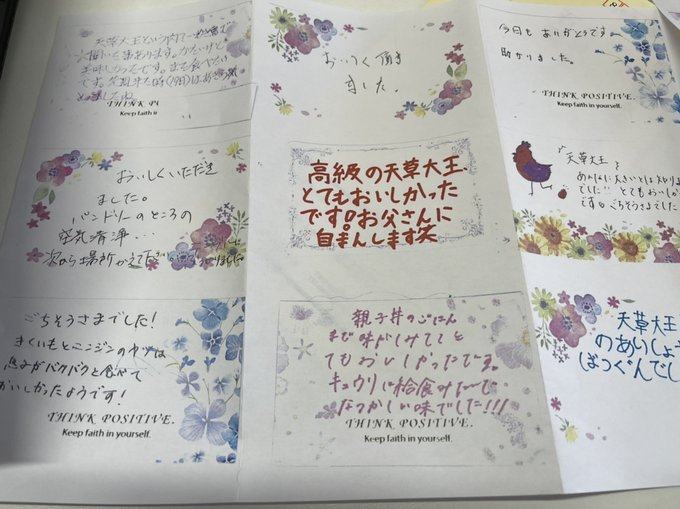 天草大王という
美味しかったです。また食べたい
THINK
Keep faith
おいしく頂き
ました。
今日も ありがとうです
助かりました。
THINK POSITIVE.
Keep faith in yourself.
おいしくいただき
ました。
パントリーのところの
空気清浄...
次から場所かえてただき
高級の天草大王
とてもおいしかった
です!お父さんに
自まんします笑
天草大王
あんなに大きいとは知りま
でした!! とてもおいし
です ごちそうさまでした
ごちそうさまでした!
きくいもとニンジンのヤツは
息子がパクパクと食べて
おいしかったようです!
THINK POSITIVE.
Keep faith in yourself.
親子丼のごはん
まで味がしみてて と
てもおいしかったです。
キュウリは給食みたいで
なつかしい味でした!!!
THINK POSITIVE.
Keep faith in yourself.
天草大王
のあいしょう
ばつぐんでし